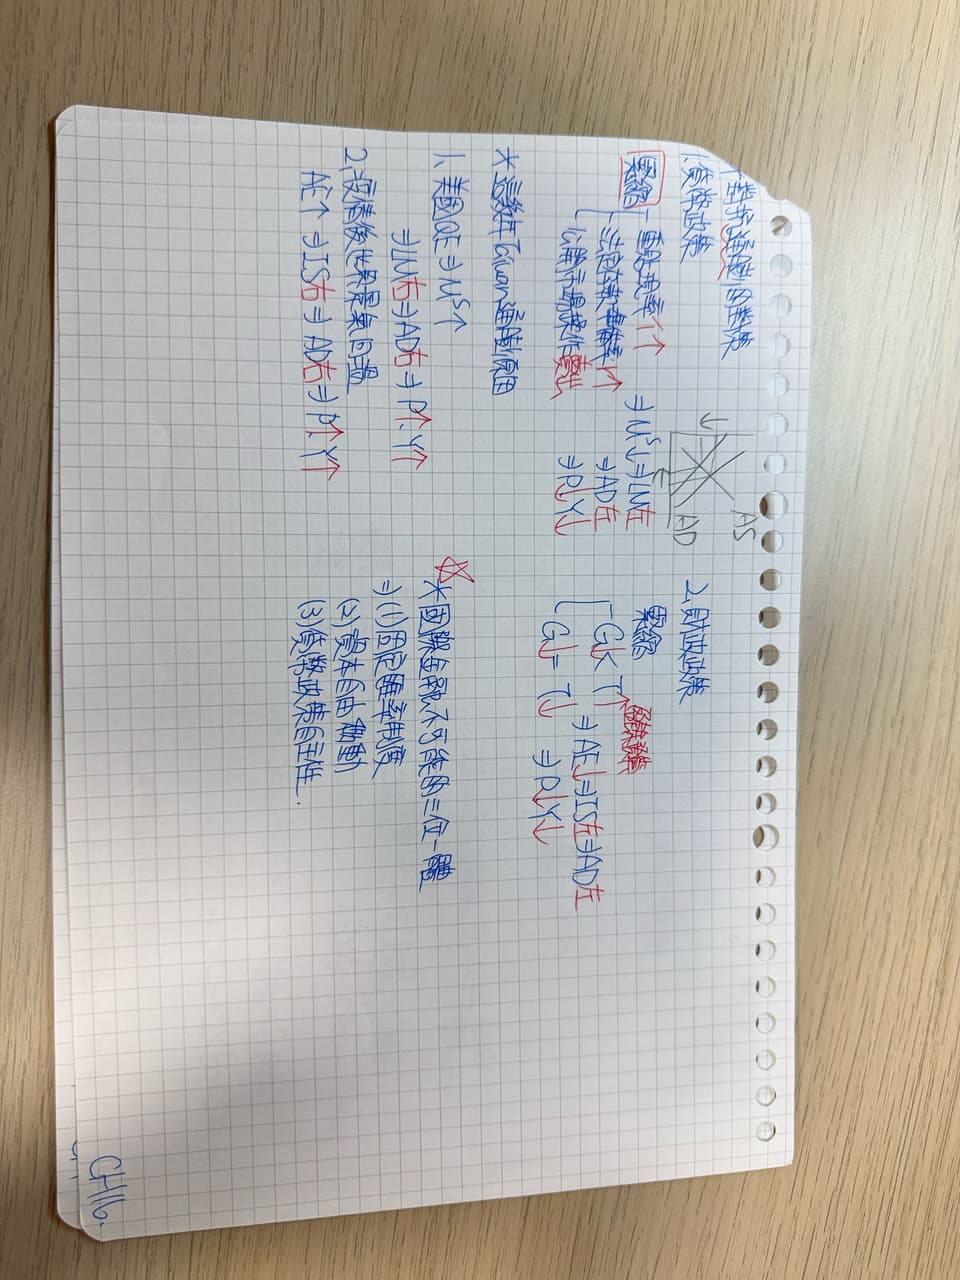 *對抗通膨的對策
1. 貨幣政策
緊縮
重貼現率↑
法定存款準備率↑
公開市場操作賣出
⇒ Mˢ↓ ⇒ LM左
⇒ AD左
⇒ P↓ Y↓
AS
AD
2. 財政政策
緊縮
G↓ < T↑
G↓ = T↓
⇒ AE↓ ⇒ IS左 ⇒ AD左
⇒ P↓ Y↓
*這幾年Taiwan通膨原因
1. 美國QE ⇒ Mˢ↑
⇒ LM右 ⇒ AD右 ⇒ P↑ Y↑
2. 疫情後世界景氣回溫
AE↑ ⇒ IS右 ⇒ AD右 ⇒ P↑ Y↑
☆
*國際金融不可能的三位一體
⇒ (1) 固定匯率制度
(2) 資本自由動
(3) 貨幣政策自主性.
CH16.